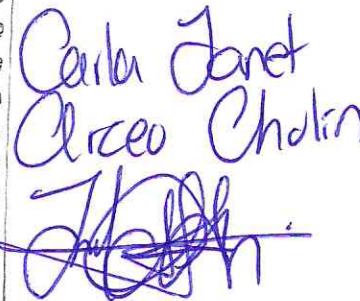 Carla Janet
Arceo Cholin